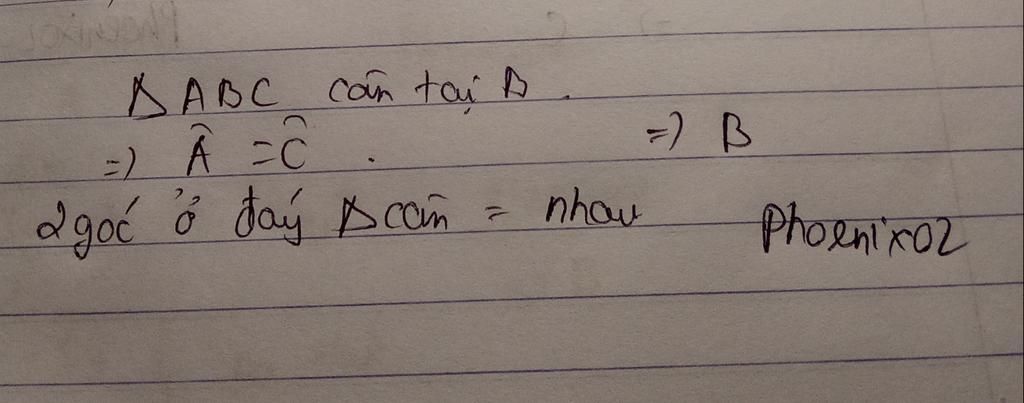 Δ ABC cân tại B.
=> Â = Ĉ. => B
2 góc ở đáy Δ cân = nhau
Phoenix02